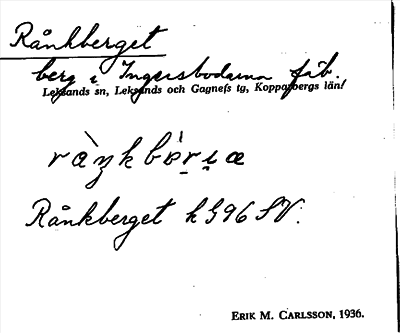 Rånkberget
berg i Ingersbodarna fäb.
Leksands sn, Leksands och Gagnefs tg, Kopparbergs län
Rånkberget h 596 SV.
ERIK M. CARLSSON, 1936.